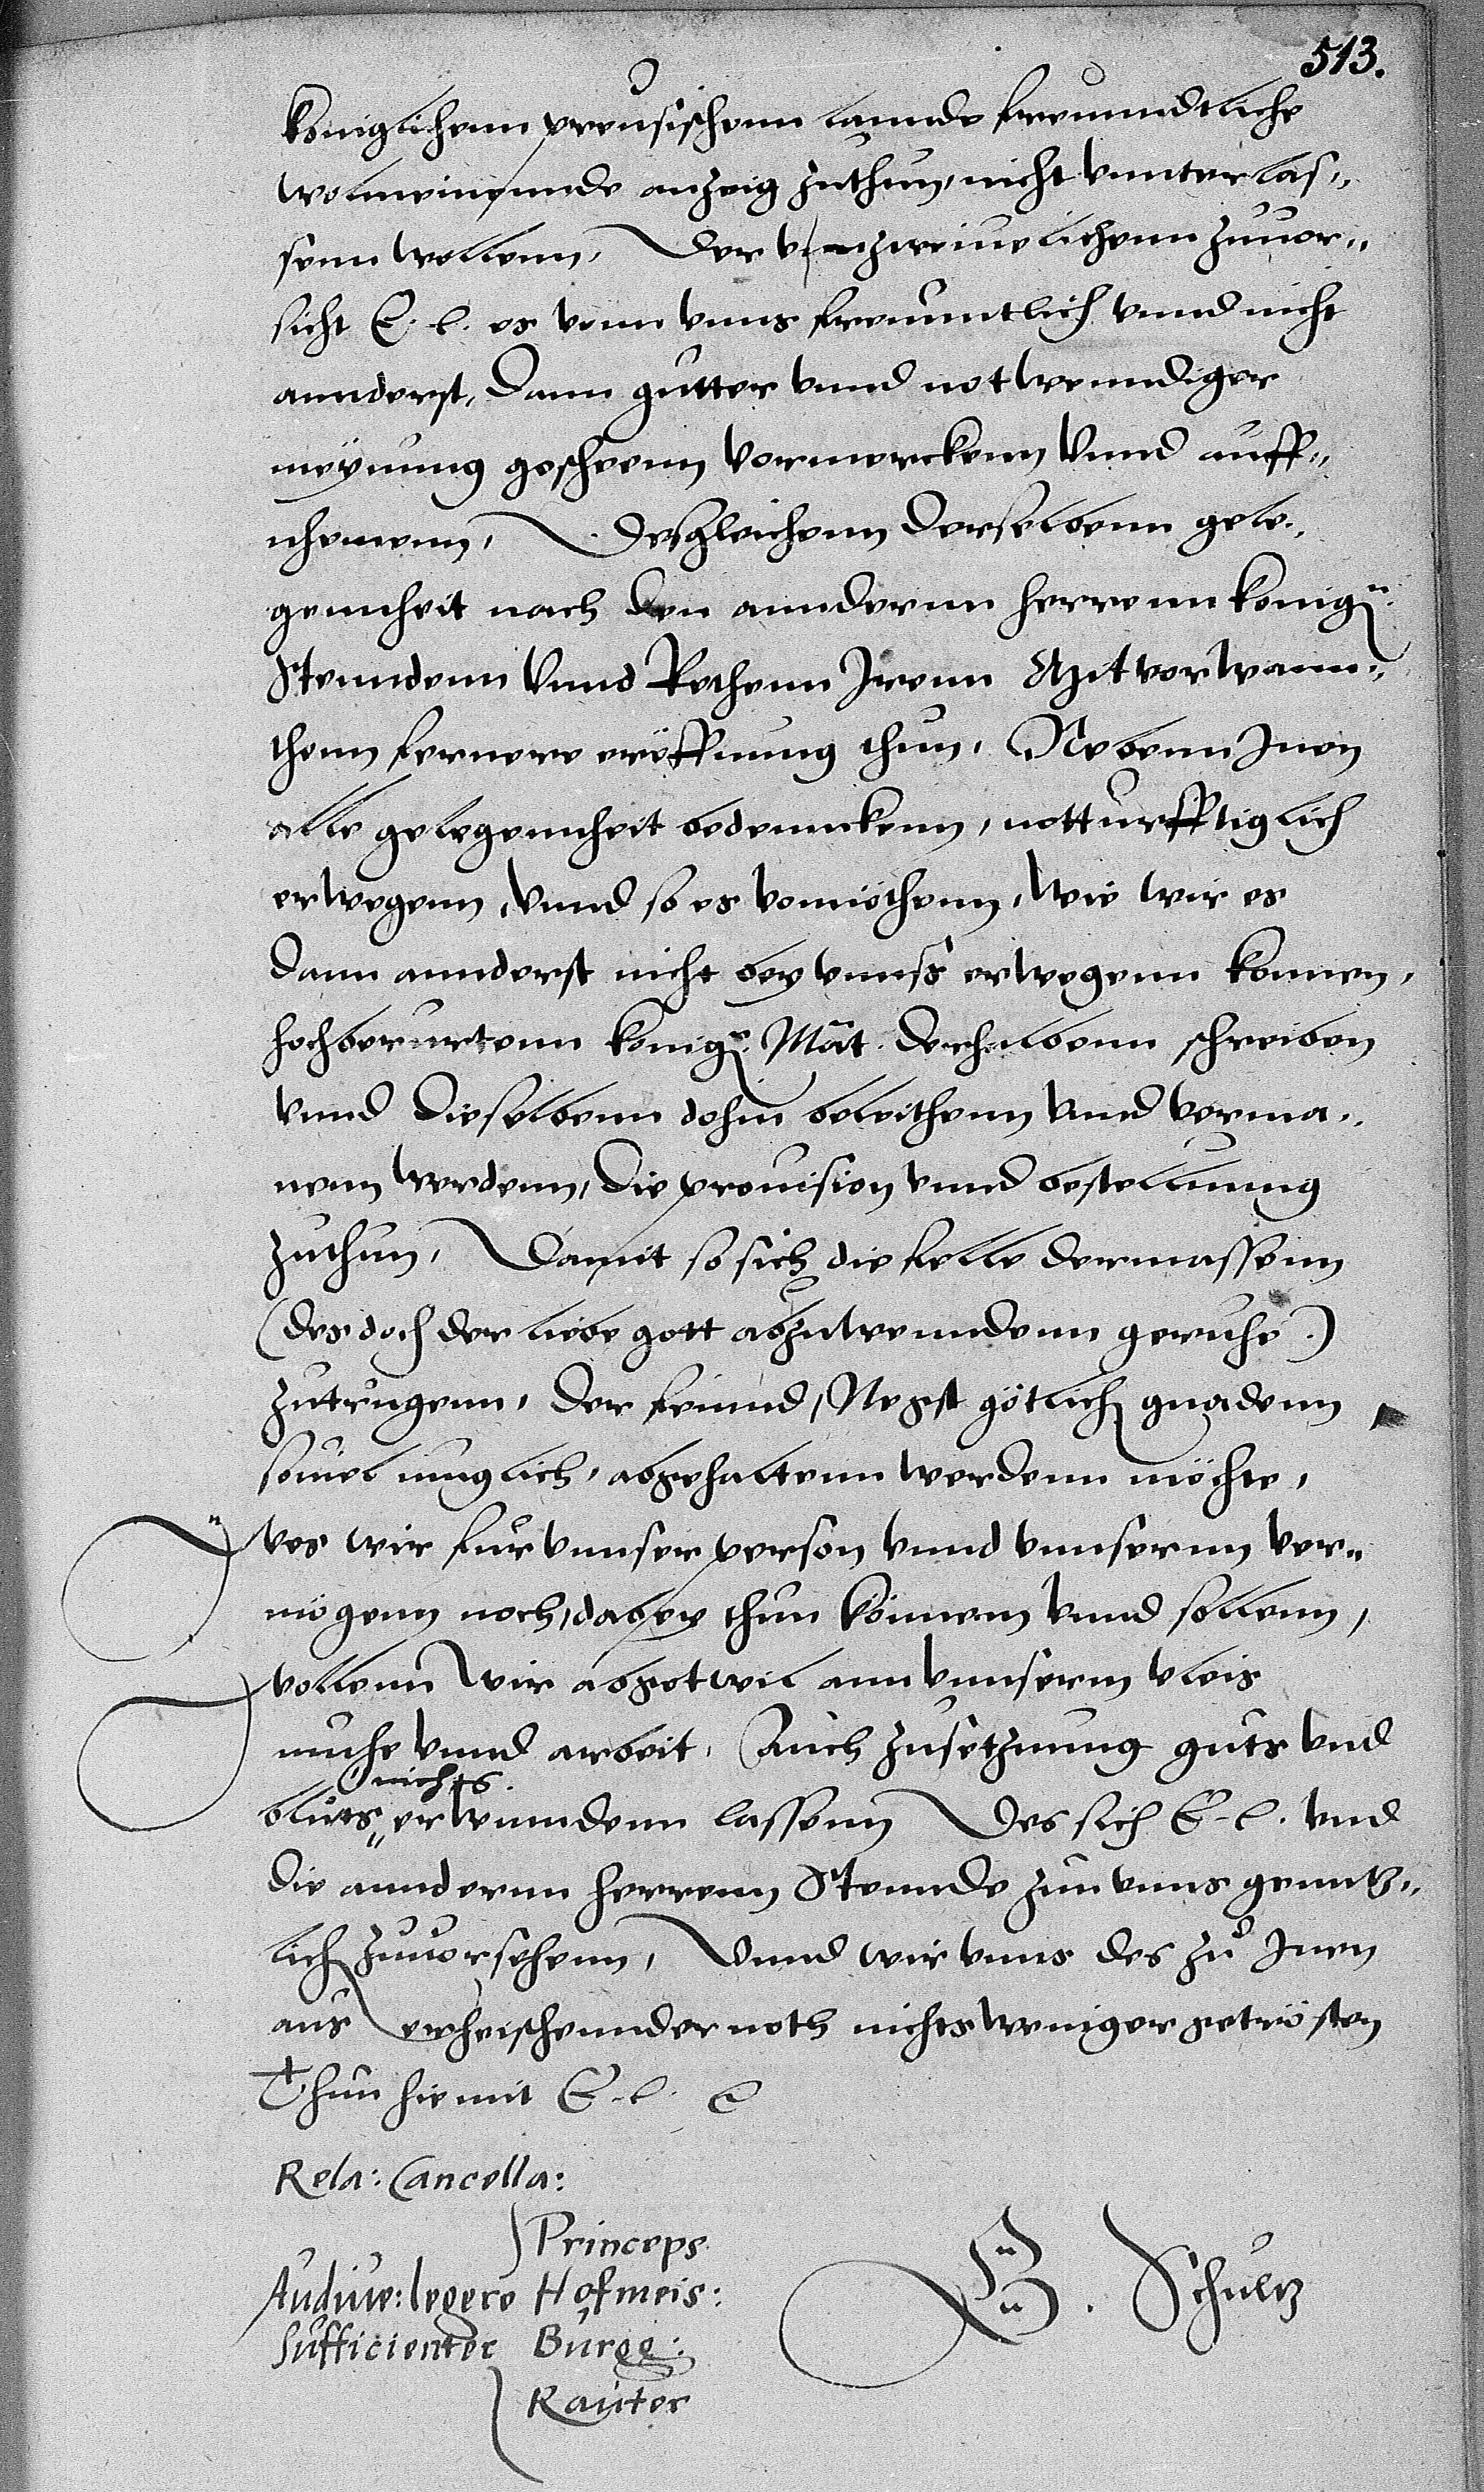 513.
koniglichenn preusischenn lannde freunndtliche
wolmeinennde anzeig zuthun, nicht vnnterlas„
senn wollenn, Der vnzweiuelichenn zuuor„
sicht E. l. es vonn vnns freuntlich vnnd nicht
annderst, Dann gutter vnnd notwenndiger
meynung gescheenn vormerckenn vnnd auff„
nhemenn, Desgleichenn derselbenn gele„
gennheit nach den annderenn herrenn konign:
Stenndenn vnnd Rethenn Irenn Mitvorwann„
thenn fernere eröffnung thun, Nebenn Inen
alle gelegennheit bedennckenn, notturfftiglich
erwegenn, vnnd so es vonnöthenn, wie wir es
dann annderst nicht bey vnnss erwegenn konnen,
hochberurtenn konign: Mat. derhalbenn schreiben
vnnd dieselbenn dohin beleithenn vnnd verma„
nenn werdenn, die prouision vnnd bestellunng
zuthun, Damit so sich die felle dermassenn
(des doch der liebe gott abzuwenndenn geruhe.)
zutrugenn, der feinnd, Negst götlich gnadenn
souiel muglich, abgehaltenn werdenn möchte,
Wes wir fur vnnser person vnnd vnnserenn ver„
mögenn noch, dabey thun könnenn vnnd sollenn,
Wollenn wir abgotwil ann vnnserm vleis
muhe vnnd arbeit, Auch zusetzunng guts vnd
bluts nichts erwinndenn lassenn Des sich E. l. vnd
die annderenn herrenn Stennde zun vnns genntz„
lich zuuorsehenn, Vnnd wir vnns des zu Inen
aus erheischennder noth nichts weniger getrösten
Thun hiemit E. l. &c
Rela: Cancella:
Princeps
Audiue: legere Hofmeis:
Sufficienter Burgg:
Rauter
B. Schultz